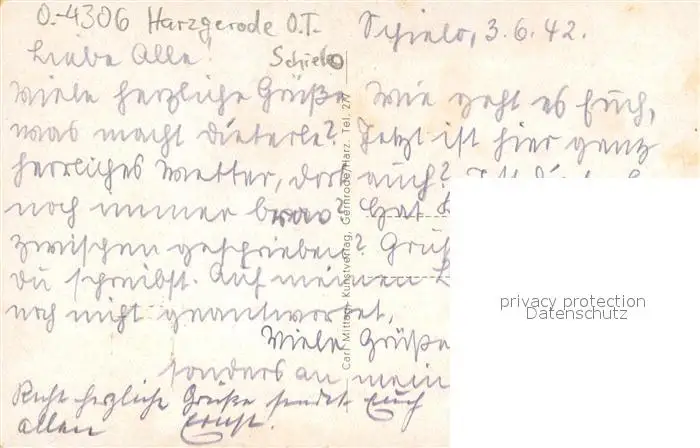 O.-4306 Harzgerode O.T.
Schielo
Schielo, 3.6.42.
Liebe Alle!
Viele herzliche Grüße. Wie geht es Euch,
was macht Dieterle? Jetzt ist hier ganz
herrliches Wetter, dort auch? Ist
noch immer brav? Hat
zwischen geschrieben? Grüß
du schreibst. Auf meinen
noch nicht geantwortet,
Viele Grüße
sonders an mein
Recht herzliche Grüße sendet Euch
allen Ernst.
Carl Mittag, Kunstverlag, Gernrode/Harz. Tel. 277
privacy protection
Datenschutz